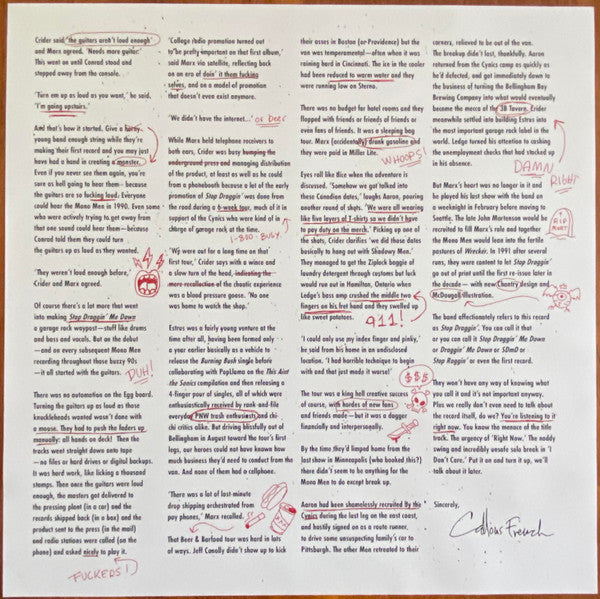 Crider said 'the guitars aren't loud enough'
and Marx agreed. 'Needs more guitar.'
This went on until Conrad stood and
stepped away from the console.
'Turn em up as loud as you want,' he said.
'I'm going upstairs.'
And that's how it started. Give a horny,
young band enough string while they're
making their first record and you may just
have had a hand in creating a monster.
Even if you never see them again, you're
sure as hell going to hear them – because
the guitars are so fucking loud. Everyone
could hear the Mono Men in 1990. Even some
who were actively trying to get away from
that one sound could hear them – because
Conrad told them they could turn
the guitars up as loud as they wanted.
'They weren't loud enough before,'
Crider and Marx agreed.
Of course there's a lot more that went
into making Stop Draggin' Me Down
a garage rock waypost – stuff like drums
and bass and vocals. But on the debut
– and on every subsequent Mono Men
recording throughout those buzzy 90s
– it all started with the guitars.
DUH!
There was no automation on the Egg board.
Turning the guitars up as loud as those
knuckleheads wanted wasn't done with
a mouse. They had to push the faders up
manually: all hands on deck! Then the
tracks went straight down onto tape
– no files or hard drives or digital backups.
It was hard work, like licking a thousand
stamps. Then once the guitars were loud
enough, the masters got delivered to
the pressing plant (in a car) and the
records shipped back (in a box) and the
product sent to the press (in the mail)
and radio stations were called (on the
phone) and asked nicely to play it.
FUCKERS!
'College radio promotion turned out
to be pretty important on that first album,'
said Marx via satellite, reflecting back
on an era of doin' it them fucking
selves, and on a model of promotion
that doesn't even exist anymore.
'We didn't have the internet...'
While Marx held telephone receivers to
both ears, Crider was busy humping the
underground press and managing distribution
of the product, at least as well as he could
from a phonebooth because a lot of the early
promotion of Stop Draggin' was done from
the road during a 6-week tour, much of it in
support of the Cynics who were kind of in
charge of garage rock at the time.
1-800-BUSY
'We were out for a long time on that'
first tour,' Crider says with a wince and
a slow turn of the head, indicating the
mere recollection of the chaotic experience
was a blood pressure goose. 'No one
was home to watch the shop.'
Estrus was a fairly young venture at the
time after all, having been formed only
a year earlier basically as a vehicle to
release the Burning Bush single before
collaborating with PopLlama on the This Aint
the Sonics compilation and then releasing a
4-finger pour of singles, all of which were
enthusiastically received by rank-and-file
everyday PNW trash enthusiasts and chi-
chi critics alike. But driving blissfully out of
Bellingham in August toward the tour's first
legs, our heroes could not have known how
much business they'd need to conduct from the
van. And none of them had a cellphone.
'There was a lot of last-minute
drop shipping orchestrated from
pay phones,' Marx recalled.
That Beer & Barfood tour was hard in lots
of ways. Jeff Conolly didn't show up to kick
their asses in Boston (or Providence) but the
van was temperamental – often when it was
raining hard in Cincinnati. The ice in the cooler
had been reduced to warm water and they
were running low on Sterno.
There was no budget for hotel rooms and they
flopped with friends or friends of friends or
even fans of friends. It was a sleeping bag
tour. Marx (accidentally) drank gasoline and
they were paid in Miller Lite.
WHOOPS!
Eyes roll like dice when the adventure is
discussed. 'Somehow we got talked into
these Canadian dates,' laughs Aaron, pouring
another round of shots. 'We were all wearing
like five layers of T-shirts so we didn't have
to pay duty on the merch.' Picking up one of
the shots, Crider clarifies 'we did those dates
basically to hang out with Shadowy Men.'
They managed to get the Ziplock baggie of
laundry detergent through customs but fuck
would run out in Hamilton, Ontario when
Ledge's bass amp crushed the middle two
fingers on his fret hand and they swelled up
like sweet potatoes.
911!
'I could only use my index finger and pinky,'
he said from his home in an undisclosed
location. 'I had horrible technique to begin
with and that just made it worse!'
$$$
The tour was a king hell creative success
of course, with hordes of new fans
and friends made – but it was a dagger
financially and interpersonally.
By the time they'd limped home from the
last show in Minneapolis (who booked this?)
there didn't seem to be anything for the
Mono Men to do except break up.
Aaron had been shamelessly recruited by the
Cynics during the last leg on the east coast,
and hastily signed on as a route runner,
to drive some unsuspecting family's car to
Pittsburgh. The other Mon retreated to their
corners, relieved to be out of the van.
The breakup didn't last long, thankfully. Aaron
returned from the Cynics camp as quickly as
he'd defected, and got immediately down to
the business of turning the Bellingham Bay
Brewing Company into what would eventually
become the mecca of the 3B Tavern. Crider
meanwhile settled into building Estrus into
the most important garage rock label in the
world. Ledge turned his attention to cashing
the unemployment checks that had stacked up
in his absence.
DAMN
RIGHT
But Marx's heart was no longer in it and
he played his last show with the band on
a weeknight in February before moving to
Seattle. The late John Mortensen would be
recruited to fill Marx's role and together
the Mono Men would lean into the fertile
pastures of Wrecker. In 1991 after several
runs, they were content to let Stop Draggin'
go out of print until the first re-issue later in
the decade – with new Chantry design and
McDougall illustration.
R.I.P
MORT
The band affectionately refers to this record
as Stop Draggin'. You can call it that
or you can call it Stop Draggin' Me Down
or Draggin' Me Down or SDmD or
Stop Raggin' or even the first record.
They won't have any way of knowing what
you call it and it's not important anyway.
Plus we really don't even need to talk about
the record itself, do we? You're listening to it
right now. You know the menace of the title
track. The urgency of 'Right Now.' The noddy
swing and incredibly unsafe solo break in 'I
Don't Care.' Put it on and turn it up, we'll
talk about it later.
Sincerely,